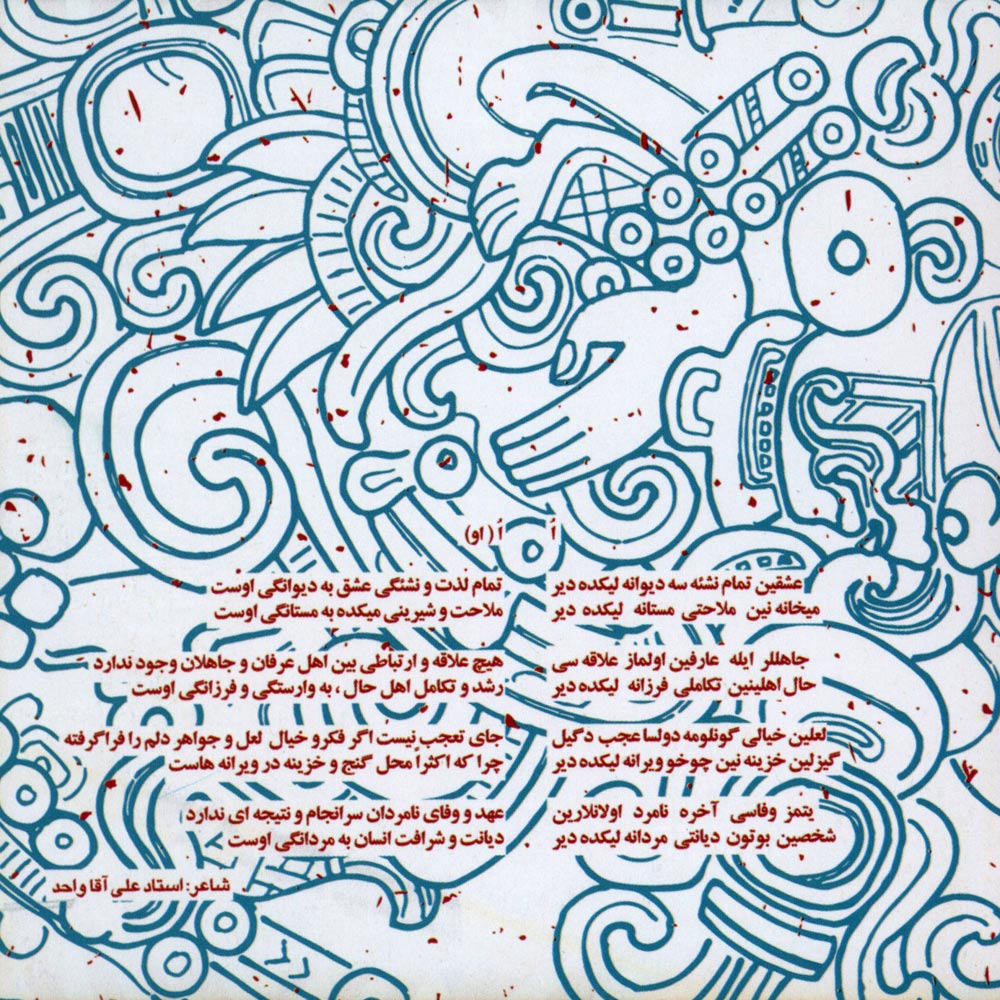 أ أ ( او)
عشقین تمام نشئه سه دیوانه لیکده دیر
میخانه نین ملاحتی مستانه لیکده دیر
تمام لذت و نشئگی عشق به دیوانگی اوست
ملاحت و شیرینی میکده به مستانگی اوست
جاهللر ایله عارفین اولماز علاقه سی
حال اهلینین تکاملی فرزانه لیکده دیر
هیچ علاقه و ارتباطی بین اهل عرفان و جاهلان وجود ندارد
رشد و تکامل اهل حال ، به وارستگی و فرزانگی اوست
لعلین خیالی گونلومه دولسا عجب دگیل
گیزلین خزینه نین چوخو ویرانه لیکده دیر
جای تعجب نیست اگر فکرو خیال لعل و جواهر دلم را فراگرفته
چرا که اکثراً محل گنج و خزینه در ویرانه هاست
یتمز وفاسی آخره نامرد اولانلارین
شخصین بوتون دیانتی مردانه لیکده دیر
عهد و وفای نامردان سرانجام و نتیجه ای ندارد
دیانت و شرافت انسان به مردانگی اوست
شاعر: استاد علی آقا واحد